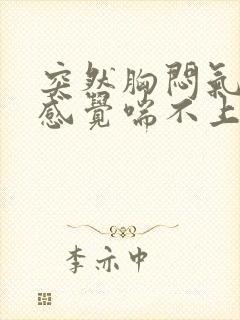 突然胸悶氣
感覺喘不上
李亦中